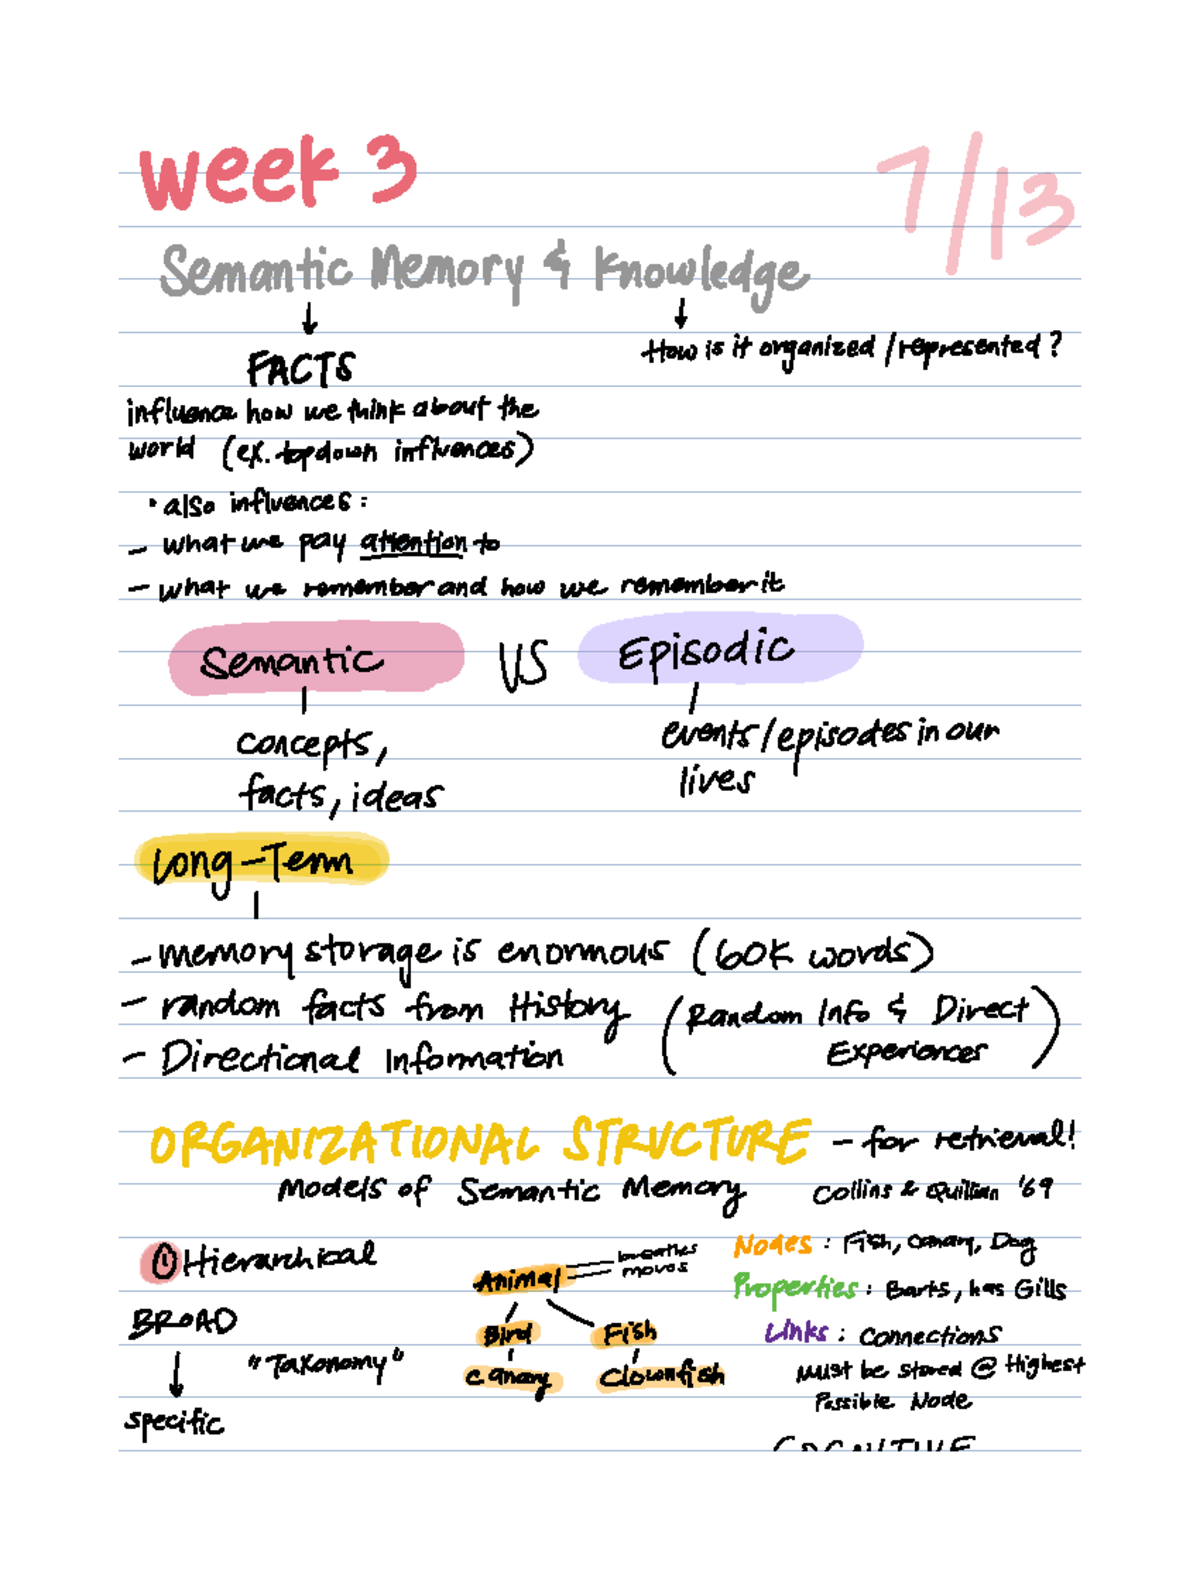 week 3
7/13
Semantic Memory & Knowledge
FACTS
How is it organized / represented?
influence how we think about the
world (ex. topdown influences)
• also influences:
- what we pay attention to
- what we remember and how we remember it
Semantic VS Episodic
concepts,
facts, ideas
events/episodes in our
lives
Long-Term
- memory storage is enormous (60K words)
- random facts from History
(Random Info & Direct
Experiences)
- Directional Information
ORGANIZATIONAL STRUCTURE - for retrieval!
Models of Semantic Memory
Collins & Quillian '69
① Hierarchical
BROAD
"Taxonomy"
specific
Animal
breathes
moves
Bird
Fish
canary
Clownfish
Nodes: Fish, Canary, Dog
Properties: Barks, has Gills
Links: Connections
Must be stored @ Highest
Possible Node
COGNITIVE